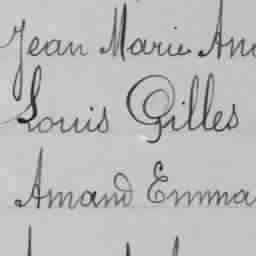 Jean Marie An
Louis Gilles
Amand Emma